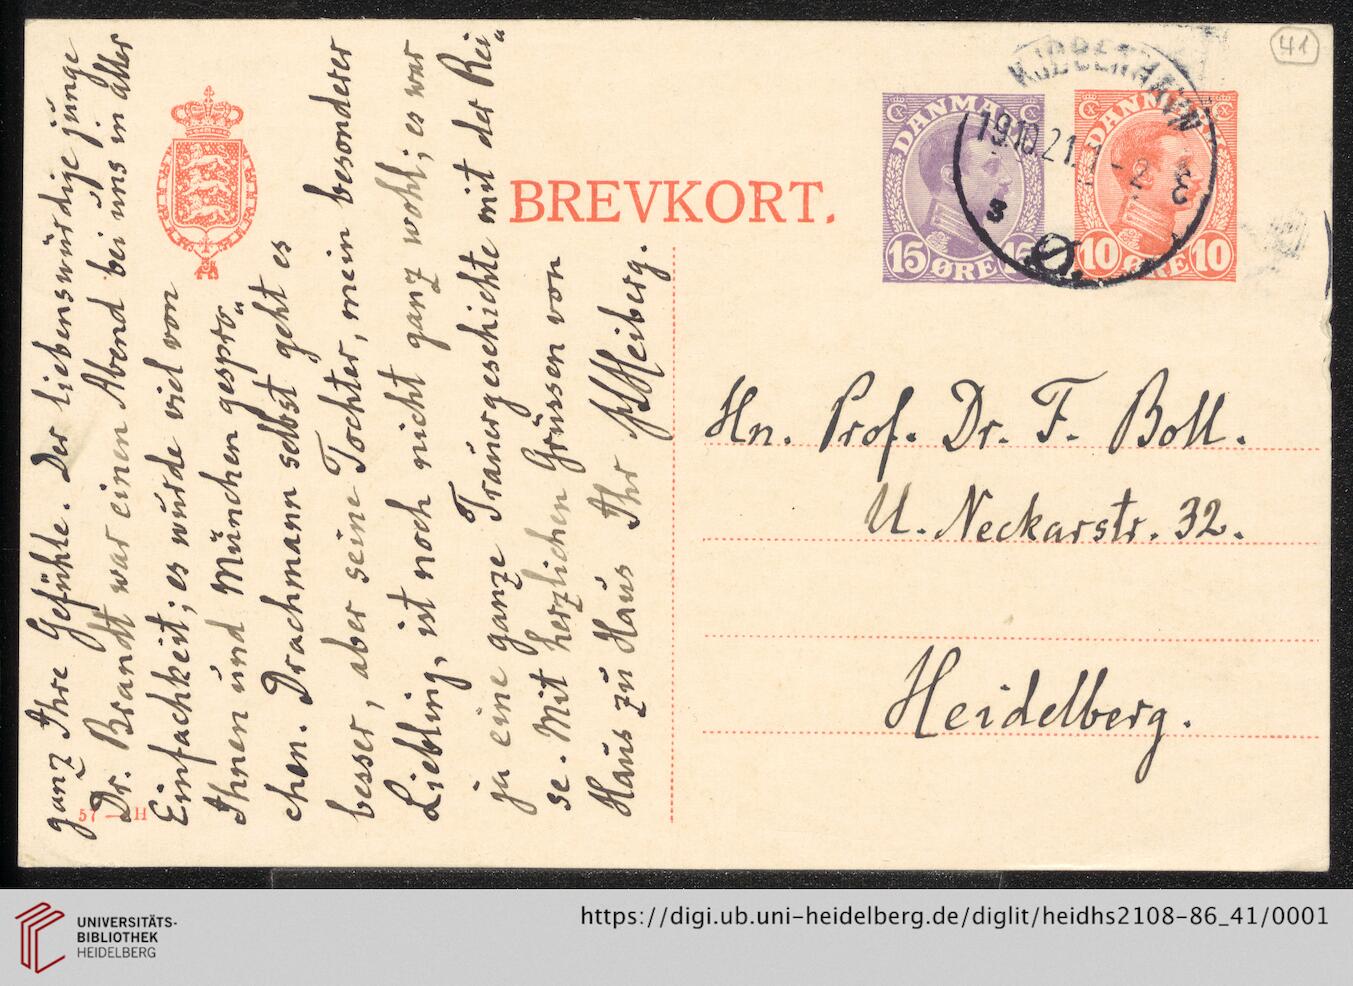 ganz Ihre Gefühle. Der liebenswürdige junge
Dr. Brandt war einen Abend bei uns in aller
Einfachkeit; es wurde viel von
Ihnen und München gesprö„
chen. Drachmann selbst geht es
besser, aber seine Tochter, mein besonderer
Liebling, ist noch nicht ganz wohl; es war
ja eine ganze Traurgeschichte mit der Rei„
se. Mit herzlichen Grüssen von
Haus zu Haus Ihr JLHeiberg.
57 — H
BREVKORT.
DANMARK
15 ØRE 15
DANMARK
10 ØRE 10
KJØBENHAVN
19.10.21. 1-2 E
Ø.
41
Hn. Prof. Dr. F. Boll.
U. Neckarstr. 32.
Heidelberg.
UNIVERSITÄTS-
BIBLIOTHEK
HEIDELBERG
https://digi.ub.uni-heidelberg.de/diglit/heidhs2108-86_41/0001